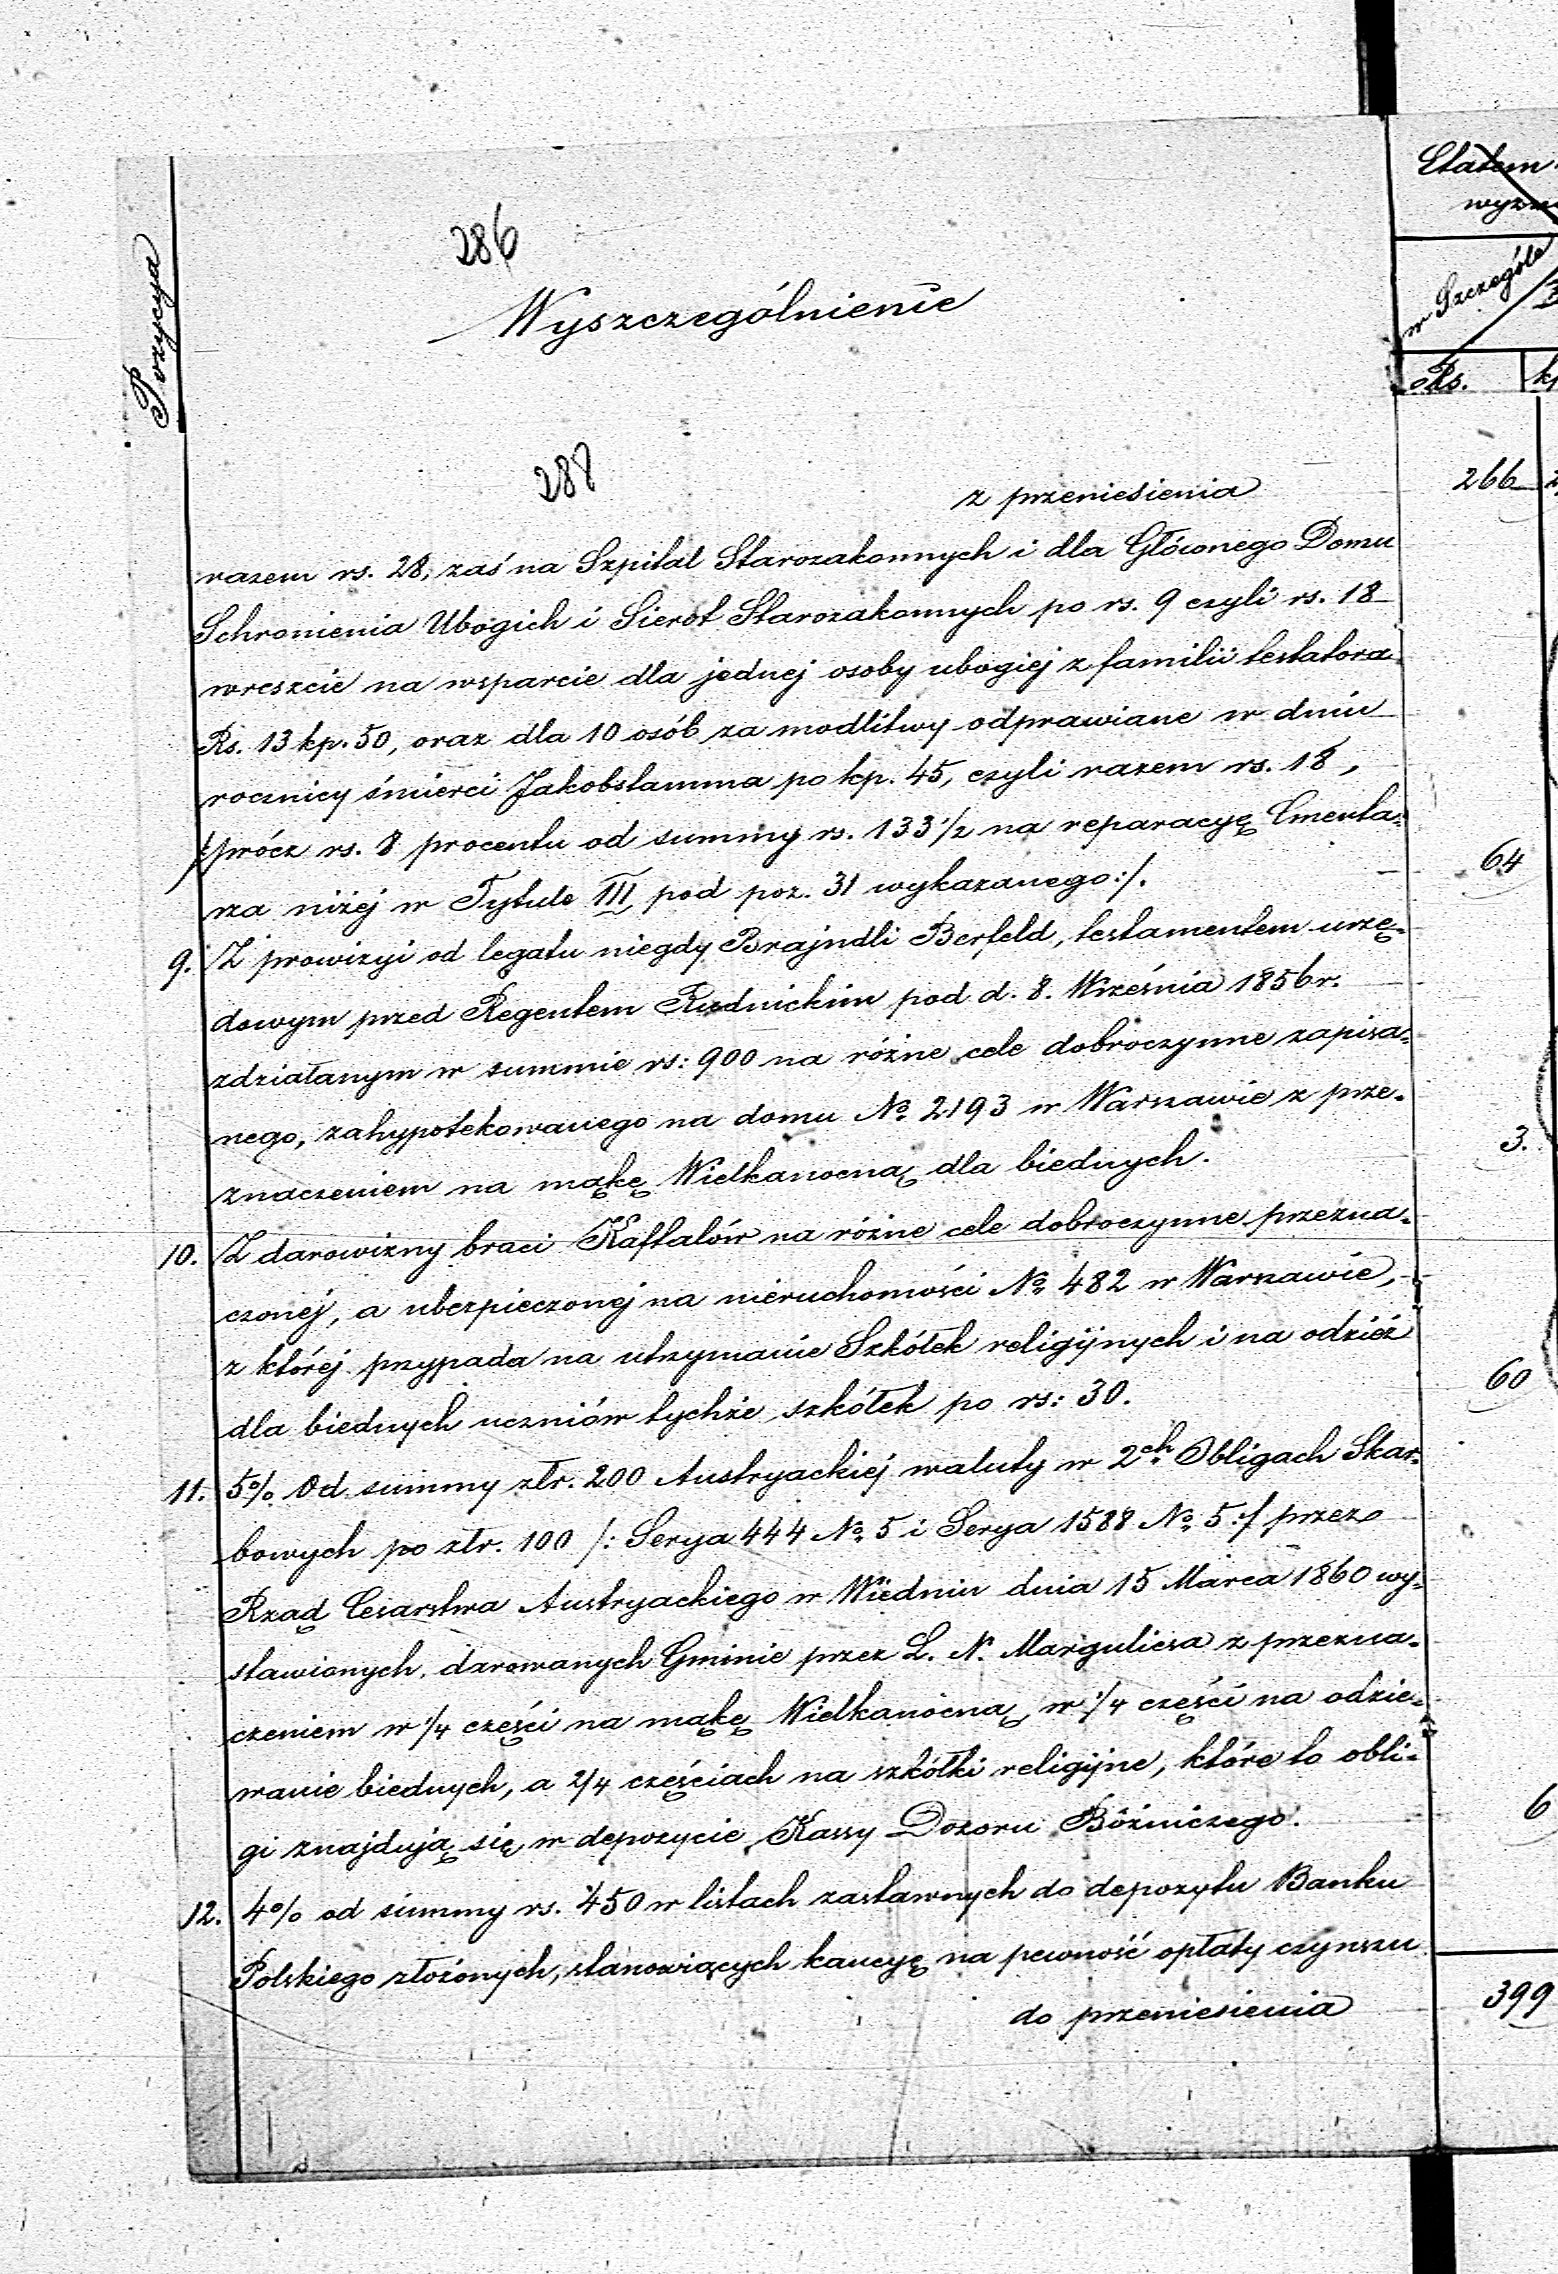 286
Etatem
Pozycya
Wyszczególnienie
w Szczególe
Rs.
288
z przeniesienia
266
razem rs. 28, zaś na Szpital Starozakonnych i dla Głównego Domu
Schronienia Ubogich i Sierot Starozakonnych po rs. 9 czyli rs. 18
wreszcie na wsparcie dla jednej osoby ubogiej z familii testatora
Rs. 13 kp. 50, oraz dla 10 osób za modlitwy odprawiane w dniu
rocznicy śmierci Jakobstamma po kp. 45, czyli razem rs. 18,
/:prócz rs. 8 procentu od summy rs. 133 1/2 na reparacyę Cmenta=
rza niżéj w Tytule III pod poz. 31 wykazanego:/.
64
9. Z prowizyi od legatu niegdy Brajndli Berfeld, testamentem urzę=
dowym przed Regentem Rudnickim pod d. 8. Września 1856 r.
zdziałanym w summie rs: 900 na różne cele dobroczynne zapisa=
nego, zahypotekowanego na domu No 2193 w Warszawie z prze=
znaczeniem na mąkę Wielkanocną dla biednych.
3.
10. Z darowizny braci Kaftalów na różne cele dobroczynne przezna=
czonéj, a ubezpieczonéj na nieruchomości No 482 w Warszawie,
z któréj przypada na utrzymanie Szkółek religijnych i na odzież
dla biednych uczniów tychże szkółek po rs: 30.
60
11. 5% Od summy złr. 200 Austryackiéj waluty w 2ch Obligach Skar=
bowych po złr. 100 /: Serya 444 No 5 i Serya 1588 No 5:/ przez
Rząd Cesarstwa Austryackiego w Wiedniu dnia 15 Marca 1860 wy=
stawionych, darowanych Gminie przez L. N. Marguliesa z przezna=
czeniem w 1/4 części na mąkę Wielkanocną, w 1/4 części na odzie=
wanie biednych, a 2/4 częściach na szkółki religijne, które to obli=
gi znajdują się w depozycie Kassy Dozoru Bóźniczego.
6
12. 4% od summy rs. 450 w listach zastawnych do depozytu Banku
Polskiego złożonych, stanowiących kaucyę na pewność opłaty czynszu
do przeniesienia
399